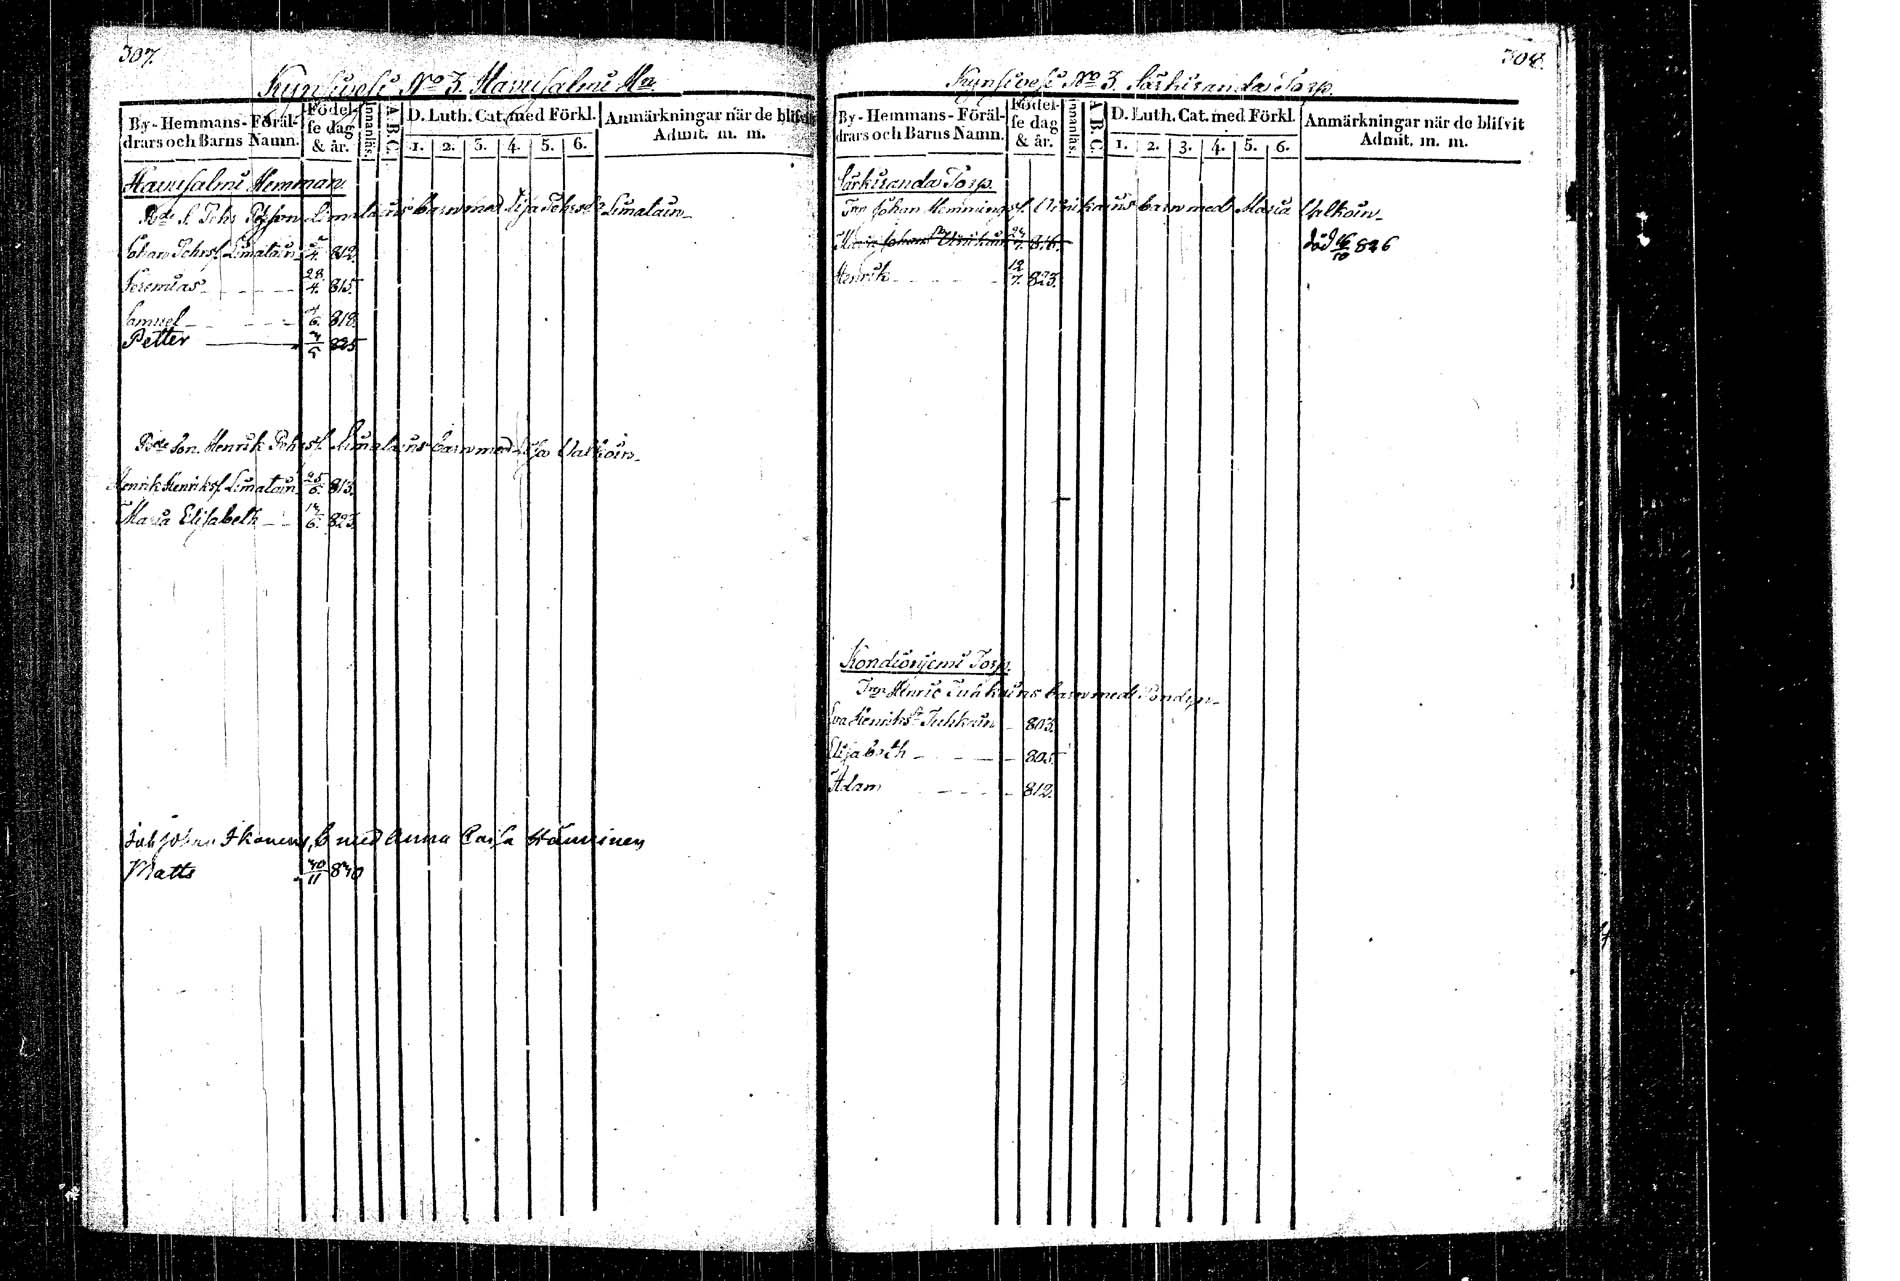 307.
Kynsivesi No 3. Hanisalmi Hn
By-Hemmans-Föräl-drars och Barns Namn. Födel-se dag & år. Innanläs. A.B.C. D. Luth. Cat. med Förkl. 1. 2. 3. 4. 5. 6. Anmärkningar när de blifvit Admit. m. m.
Hemman.
Limatains barn med Lisa Pehrsdr Limatain
Johan Pehrsf. Limatain 4. 812.
Jeremias 28/4. 815.
Samuel 6. 818.
Petter 825
Bde Son. Henrik Pehrsf. Limatains barn med Valkoin
Henrik Henriksf. Limatain 25/6. 813.
Maria Elisabeth 6. 823.
Johan Ikonens b med Anna Caisa Hänninen
Matts 30/11 830
308.
Kynsivesi No 3. Särkiranda Torp.
By-Hemmans-Föräl-drars och Barns Namn. Födel-se dag & år. Innanläs. A.B.C. D. Luth. Cat. med Förkl. 1. 2. 3. 4. 5. 6. Anmärkningar när de blifvit Admit. m. m.
Särkiranda Torp.
Trp Johan Hemmingsf. barn med Maria
död 26/10 826
Henrik 12/7. 823.
Torp.
Trp Henric Tuhkains barn med
Eva Henriksdr Tuhkain 803.
Elisabeth 805.
Adam 812.